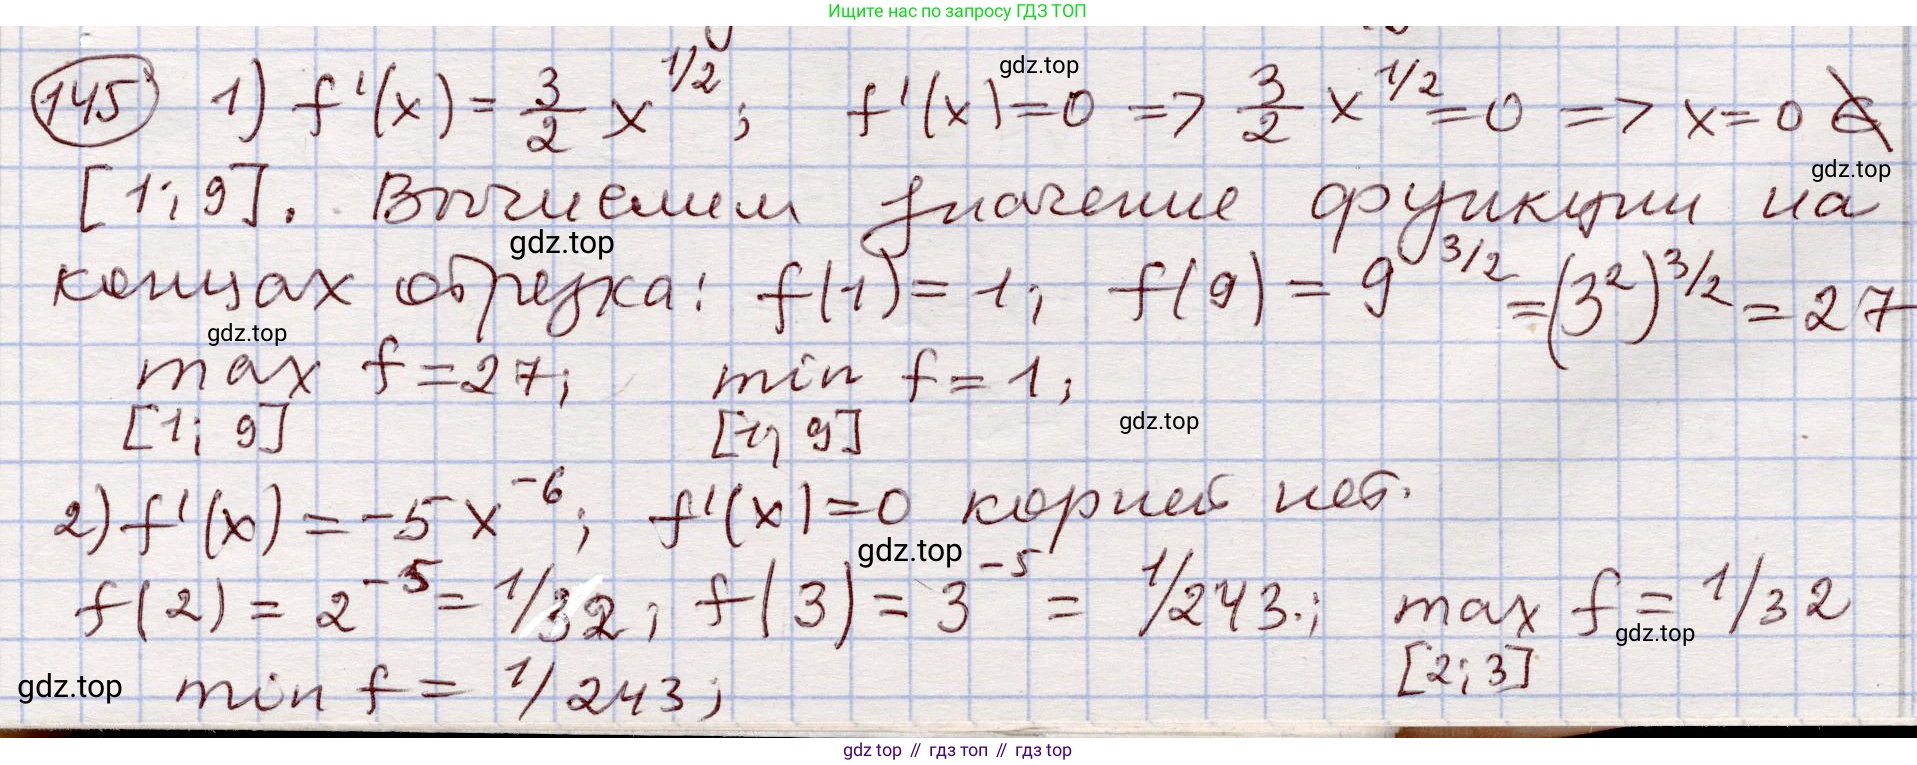 Ищите нас по запросу ГДЗ ТОП
145 1) f'(x) = 3/2 x^1/2; f'(x) = 0 => 3/2 x^1/2 = 0 => x = 0 ∉
gdz.top
gdz.top
[1; 9]. Вычислим значение функции на
gdz.top
концах отрезка: f(1) = 1; f(9) = 9^3/2 = (3^2)^3/2 = 27
gdz.top
max f = 27; min f = 1;
[1; 9] [1; 9]
gdz.top
2) f'(x) = -5x^-6; f'(x) = 0 корней нет.
gdz.top
f(2) = 2^-5 = 1/32; f(3) = 3^-5 = 1/243.; max f = 1/32
gdz.top
[2; 3]
gdz.top
min f = 1/243;
gdz top // гдз топ // гдз top